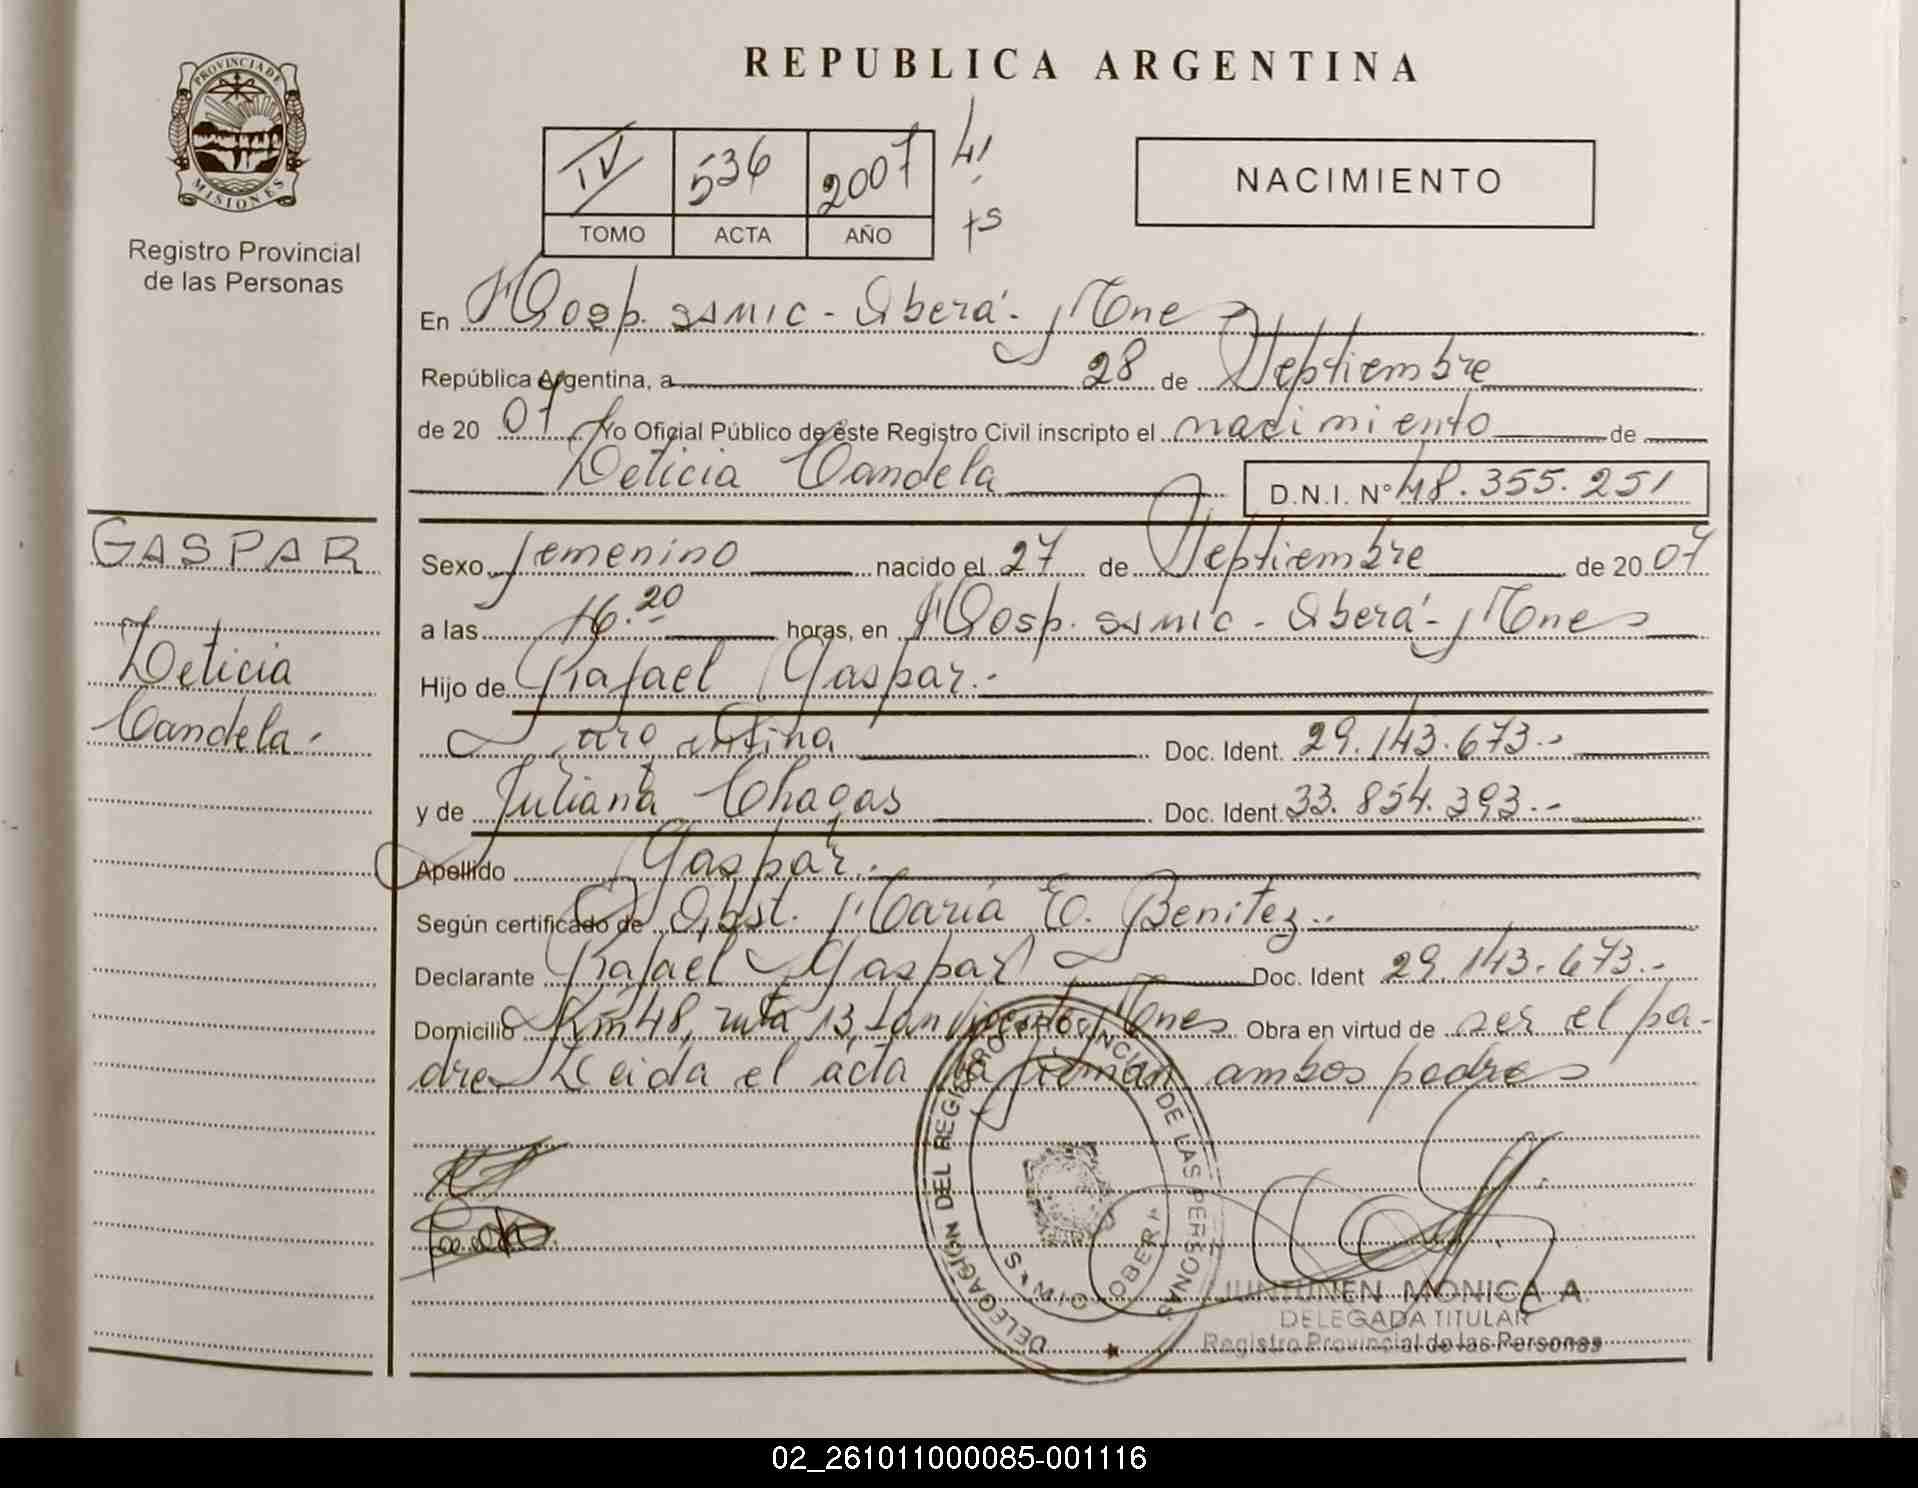 PROVINCIA DE
MISIONES
Registro Provincial
de las Personas
REPUBLICA ARGENTINA
IV 536 2007
TOMO ACTA AÑO
NACIMIENTO
En Hosp. SAMIC - Oberá - Mnes
República Argentina, a 28 de Septiembre
de 20 07 Yo Oficial Público de este Registro Civil inscripto el nacimiento de
Leticia Candela D.N.I. N° 48.355.251
GASPAR
Leticia
Candela.-
Sexo femenino nacido el 27 de Septiembre de 20 07
a las 16.20 horas, en Hosp. SAMIC - Oberá - Mnes
Hijo de Rafael Gaspar.-
Doc. Ident. 29.143.673.-
y de Juliana Chagas Doc. Ident 33.854.393.-
Apellido Gaspar.-
Según certificado de Obst. María E. Benitez.-
Declarante Rafael Gaspar Doc. Ident 29.143.673.-
Domicilio Km 48, ruta 13, San Vicente, Mnes Obra en virtud de ser el pa-
dre Leida el acta la firman ambos padres
DELEGACION DEL REGISTRO PROVINCIAL DE LAS PERSONAS
OBERA
JUNTUNEN MONICA A.
DELEGADA TITULAR
Registro Provincial de las Personas
02_261011000085-001116